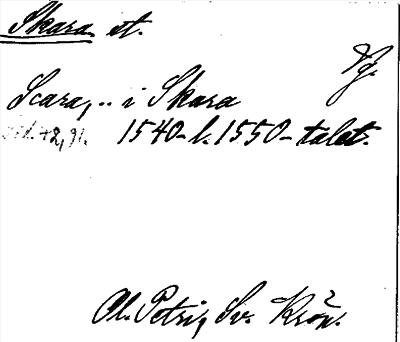 Skara et.
Fg.
Scara, .. i Skara
sid. 42, 91. 1540- l. 1550-talet.
Ol. Petri, Sv. Krön.